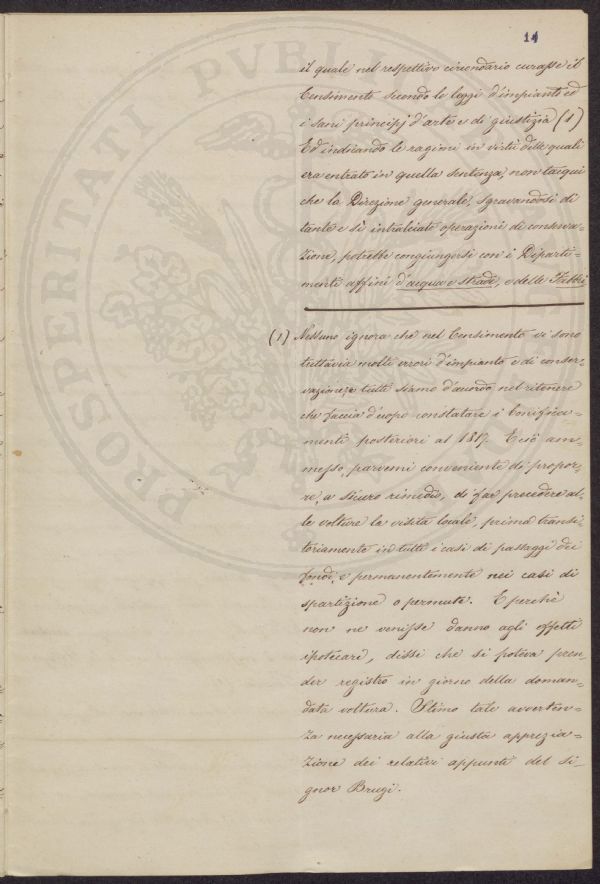 14
il quale nel respettivo circondario curasse il
Censimento secondo le leggi d'impianto ed
i sani principj d'arte e di giustizia (1)
Ed indicando le ragioni in virtù delle quali
era entrato in quella sentenza, non tacqui
che la Direzione generale, sgravandosi di
tante e sì intralciate operazioni di conserva-
zione, potrebbe congiungersi con i Diparti-
menti affini d'acqua e strade, e delle Fabbri
(1) Nessuno ignora che nel Censimento vi sono
tuttavia molti errori d'impianto e di conser-
vazione, e tutti siamo d'accordo nel ritenere
che faccia d'uopo constatare i bonifica-
menti posteriori al 1817. E ciò am-
messo, parvemi conveniente di propor-
re, a sicuro rimedio, di far precedere al-
le volture la visita locale, prima transi-
toriamente in tutti i casi di passaggi dei
fondi, e permanentemente nei casi di
spartizione o permute. E perchè
non ne venisse danno agli effetti
ipotecari, dissi che si poteva pren-
der registro in giorno della doman-
data voltura. Stimo tale avverten-
za necessaria alla giusta apprezia-
zione dei relativi appunti del si-
gnor Brugi.
PROSPERITATI PVBLI